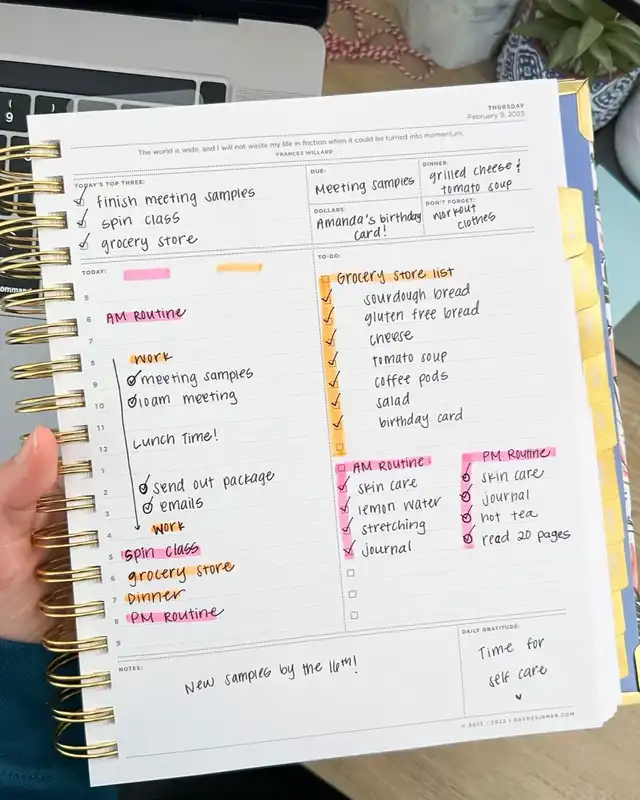 THURSDAY
February 9, 2023
The world is wide, and I will not waste my life in friction when it could be turned into momentum.
FRANCES WILLARD
TODAY'S TOP THREE:
finish meeting samples
spin class
grocery store
DUE:
Meeting samples
DINNER:
grilled cheese &
tomato soup
DOLLARS:
Amanda's birthday
card!
DON'T FORGET:
workout
clothes
TODAY:
5
6 AM Routine
7
8 work
9 meeting samples
10 10am meeting
11
Lunch Time!
12
1
2 send out package
3 emails
4 work
5 spin class
6 grocery store
7 Dinner
8 PM Routine
9
TO-DO:
Grocery store list
sourdough bread
gluten free bread
cheese
tomato soup
coffee pods
salad
birthday card
AM Routine:
skin care
lemon water
stretching
journal
PM Routine
skin care
journal
hot tea
read 20 pages
NOTES:
New samples by the 16th!
DAILY GRATITUDE:
Time for
self care
© 2012 - 2022 | DAYDESIGNER.COM
9
command